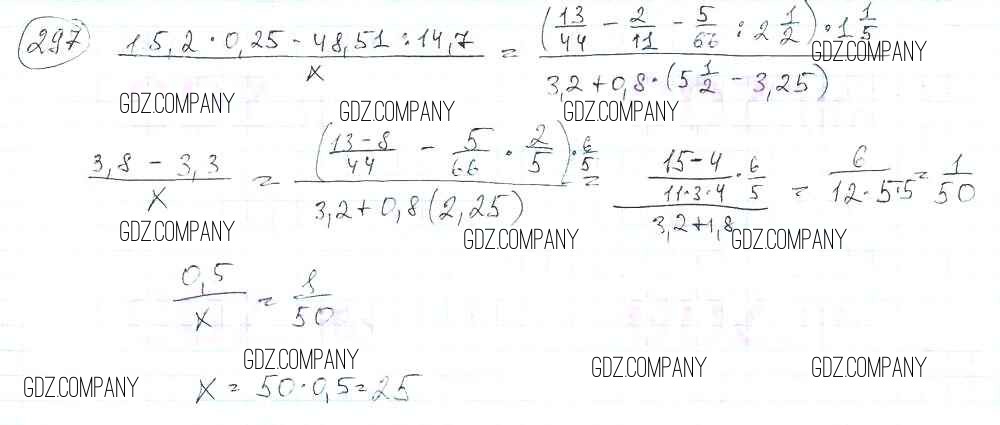 297) (15,2 · 0,25 - 48,51 : 14,7) / x = ((13/44 - 2/11 - 5/66 : 2 1/2) · 1 1/5) / (3,2 + 0,8 · (5 1/2 - 3,25))
GDZ.COMPANY
GDZ.COMPANY GDZ.COMPANY GDZ.COMPANY
(3,8 - 3,3) / x = (((13-8)/44 - 5/66 · 2/5) · 6/5) / (3,2 + 0,8 (2,25)) = ((15-4)/(11·3·4) · 6/5) / (3,2+1,8) = 6/(12·5·5) = 1/50
GDZ.COMPANY GDZ.COMPANY GDZ.COMPANY
0,5 / x = 1/50
GDZ.COMPANY GDZ.COMPANY GDZ.COMPANY
GDZ.COMPANY
x = 50 · 0,5 = 25